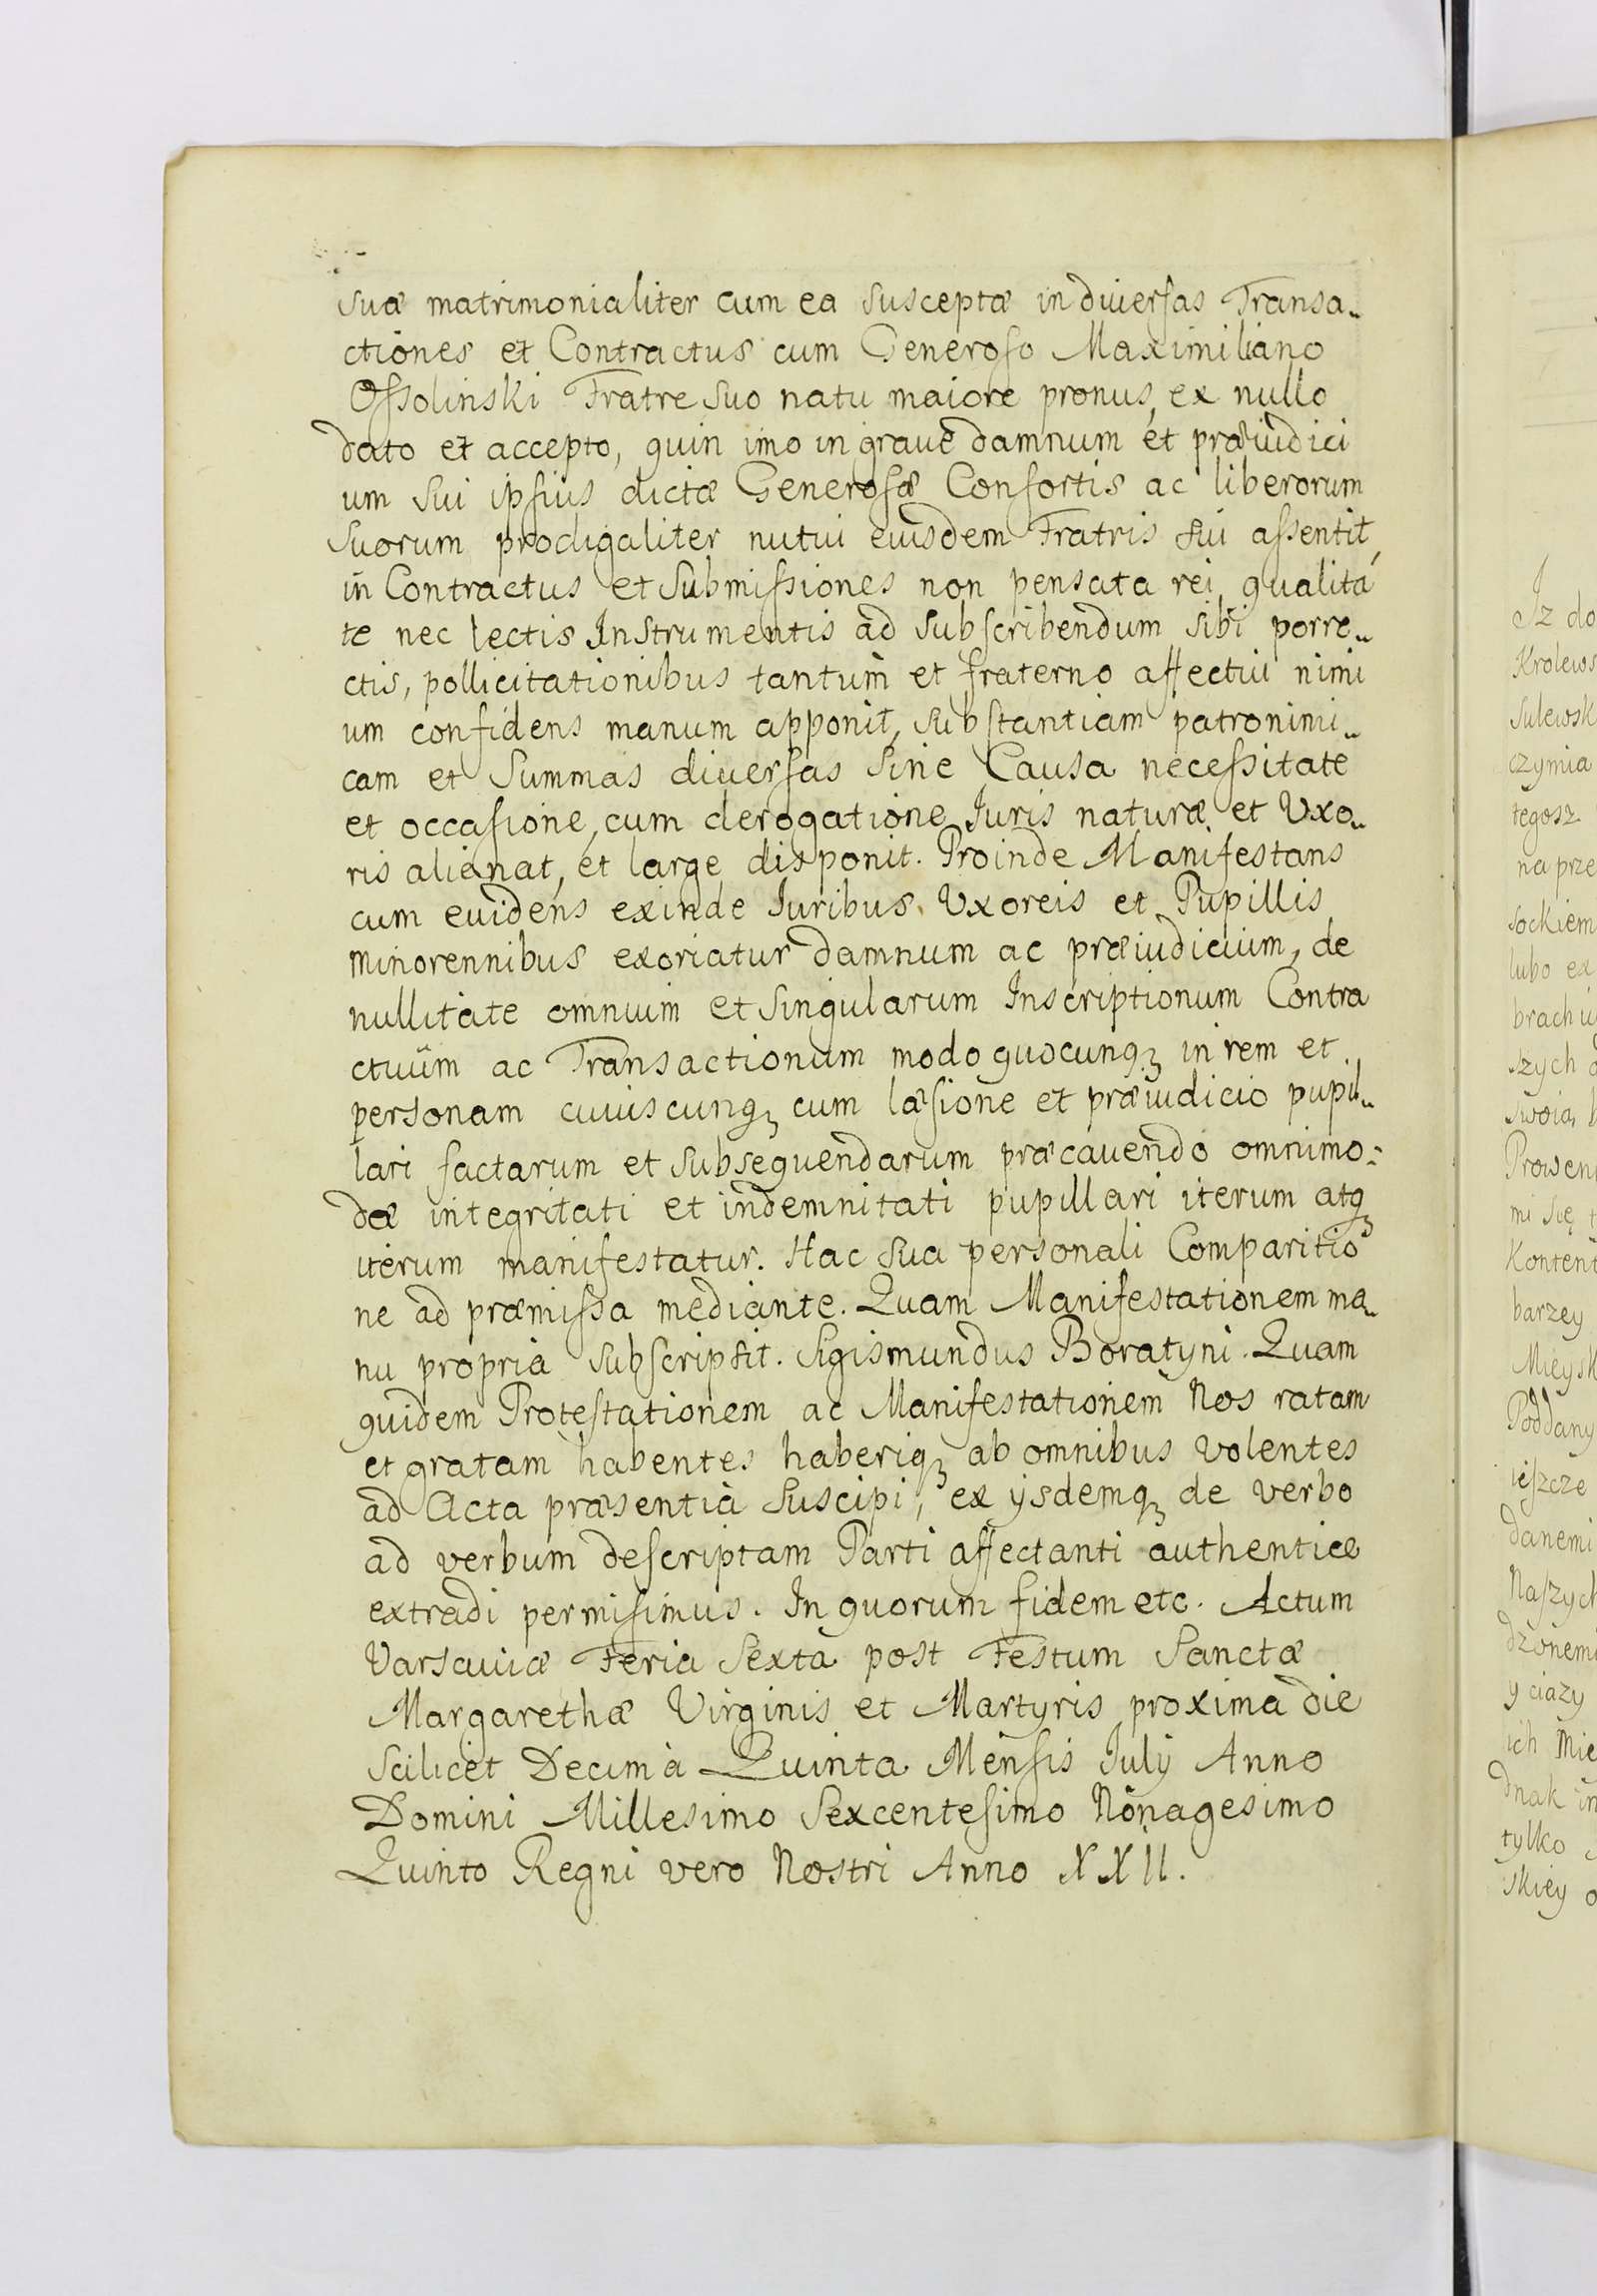 suæ matrimonialiter cum ea susceptæ in diuersas Transa„
ctiones et Contractus cum Generoso Maximiliano
Ossolinski Fratre suo natu maiore pronus, ex nullo
dato et accepto, quin imo in graue damnum et præiudici
um sui ipsius dictæ Generosæ Consortis ac liberorum
suorum prodigaliter nutui eiusdem Fratris sui assentit,
in Contractus et submissiones non pensata rei qualita
te nec lectis Instrumentis ad subscribendum sibi porre„
ctis, pollicitationibus tantum et fraterno affectui nimi
um confidens manum apponit, substantiam patronimi„
cam et Summas diuersas sine Causa necessitate
et occasione, cum derogatione Iuris naturæ et Uxo„
ris alienat, et large disponit. Proinde Manifestans
cum euidens exinde Iuribus Uxoreis et Pupillis
minorennibus exoriatur damnum ac præiudicium, de
nullitate omnium et singularum Inscriptionum Contra
ctuum ac Transactionum modo quocunqꝫ in rem et
personam cuiuscunqꝫ cum læsione et præiudicio pupil„
lari factarum et subsequendarum præcauendo omnimo:
dæ integritati et indemnitati pupillari iterum atqꝫ
iterum manifestatur. Hac sua personali Comparitio
ne ad præmissa mediante. Quam Manifestationem ma„
nu propria subscripsit. Sigismundus Boratyni. Quam
quidem Protestationem ac Manifestationem Nos ratam
et gratam habentes haberiqꝫ ab omnibus volentes
ad Acta præsentia suscipi, ex ijsdemqꝫ de verbo
ad verbum descriptam Parti affectanti authentice
extradi permisimus. In quorum fidem etc. Actum
Varsauiæ Feria Sexta post Festum Sanctæ
Margarethæ Virginis et Martyris proxima die
scilicet Decima Quinta Mensis Iulij Anno
Domini Millesimo Sexcentesimo Nonagesimo
Quinto Regni vero Nostri Anno XXII.
Iz do
Krolews
Sulewsk
czymia
tegosz
na prze
sockiem
lubo ex
brach
szych
swoią
Prowen
mi się
Kontent
barzey
Mieysk
Poddany
ieszcze
danemi
Naszych
dzonem
y ciazy
ich Mie
dnak in
tylko
skiey